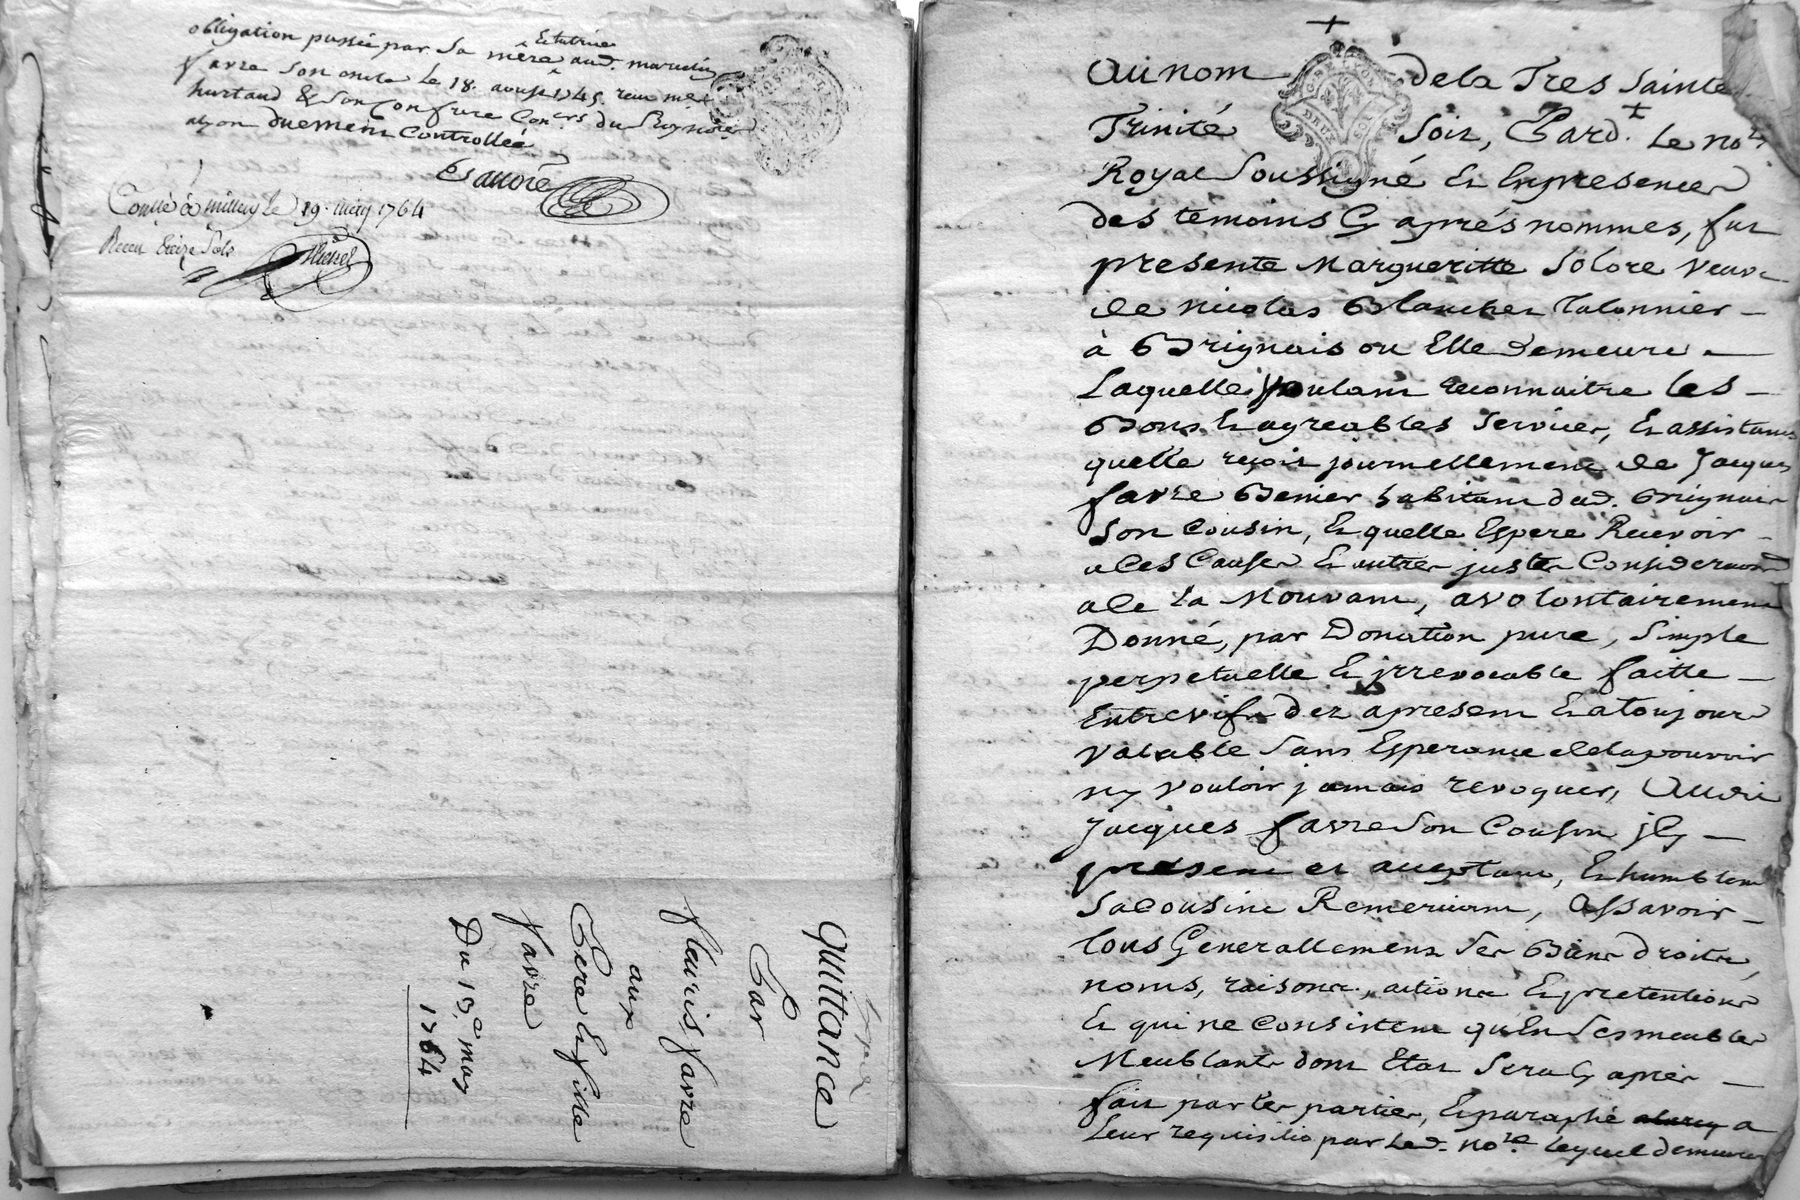 obligation passée par sa mère Et tutrice aud. marcelin
favre son oncle le 18. aoust 1745. receu me
hurtaud & son Confrere Con.ers du Roy no.res
a lyon duement Controllée
Esauvie
Conllé a millery le 19. may 1764
Receu treize sols
Michel
quittance
Par
fleuris favre
aux
Pere & fils
favre
Du 13.e may
1764
+
Au nom de la Tres sainte
Trinité soit, Pard.t Le no.re
Royal soussigné Et En presence
des temoins Cy aprés nommes, fut
presente Margueritte Solore veuve
de nicolas Blanchet talonnier
à Brignais ou Elle demeure
Laquelle voulant reconnaitre les
Bons Et agreables services, Et assistance
quelle reçoit journellement de Jacques
favre habitant dud. Brignais
son Cousin, Et quelle Espere Recevoir
a Ces Causes Et autres justes Considerations
a Ce La Mouvant, a volontairement
Donné, par Donation pure, simple
perpetuelle Et jrrevocable faitte
Entrevifs dez apresent Et a toujours
valable sans Esperance de la pouvoir
ny vouloir jamais revoquer, Audit
Jacques favre son Cousin jcy
present et acceptant, Et humblement
sa Cousine Remerciant, Assavoir
tous Generallement ses Biens droits,
noms, raisons, actions Et pretentions
Et qui ne Consistent qu'En ses meubles
Meublants dont Etat sera Cy aprés
fait par les parties, Et paraphé a
leur requisition par led. no.re lequel demeurera